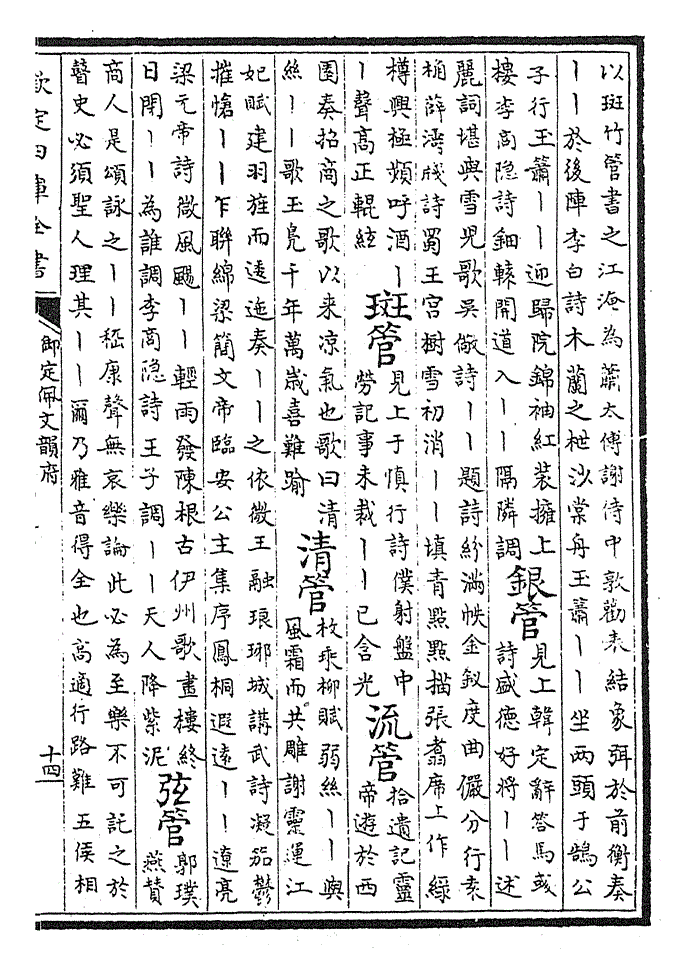 以斑竹管書之江淹為蕭太傅謝侍中敦勸表結象弭於前衡奏
丨丨於後陣李白詩木蘭之枻沙棠舟玉簫丨丨坐兩頭于鵠公
子行玉簫丨丨迎歸院錦袖紅裝擁上
樓李商隐詩鈿轅開道入丨丨隔隣調
銀管
見上韓定辭答馬彧
詩盛德好將丨丨述
麗詞堪與雪兒歌吳儆詩丨丨題詩紛滿帙金釵度曲儼分行袁
桷薛濤牋詩蜀王宫樹雪初消丨丨填青點點描張翥席上作綠
樽興極頻呼酒丨
丨聲高正輥絃
斑管
見上于慎行詩僕射盤中
勞記事未裁丨丨已含光
流管
拾遺記靈
帝遊於西
園奏招商之歌以来凉氣也歌曰清
絲丨丨歌玉鳧千年萬歲喜難踰
清管
枚乘柳賦弱絲丨丨與
風霜而共雕謝靈運江
妃賦建羽旌而逶迤奏丨丨之依微王融琅琊城講武詩凝笳鬱
摧愴丨丨乍聯綿梁簡文帝臨安公主集序鳳桐遐遠丨丨遼亮
梁元帝詩微風飈丨丨輕雨發陳根古伊州歌畫樓終
日閉丨丨為誰調李商隐詩王子調丨丨天人降紫泥
弦管
郭璞
燕賛
商人是頌詠之丨丨嵇康聲無哀樂論此必為至樂不可託之於
瞽史必須聖人理其丨丨爾乃雅音得全也高適行路難五侯相
欽定四庫全書
御定佩文韻府
十四